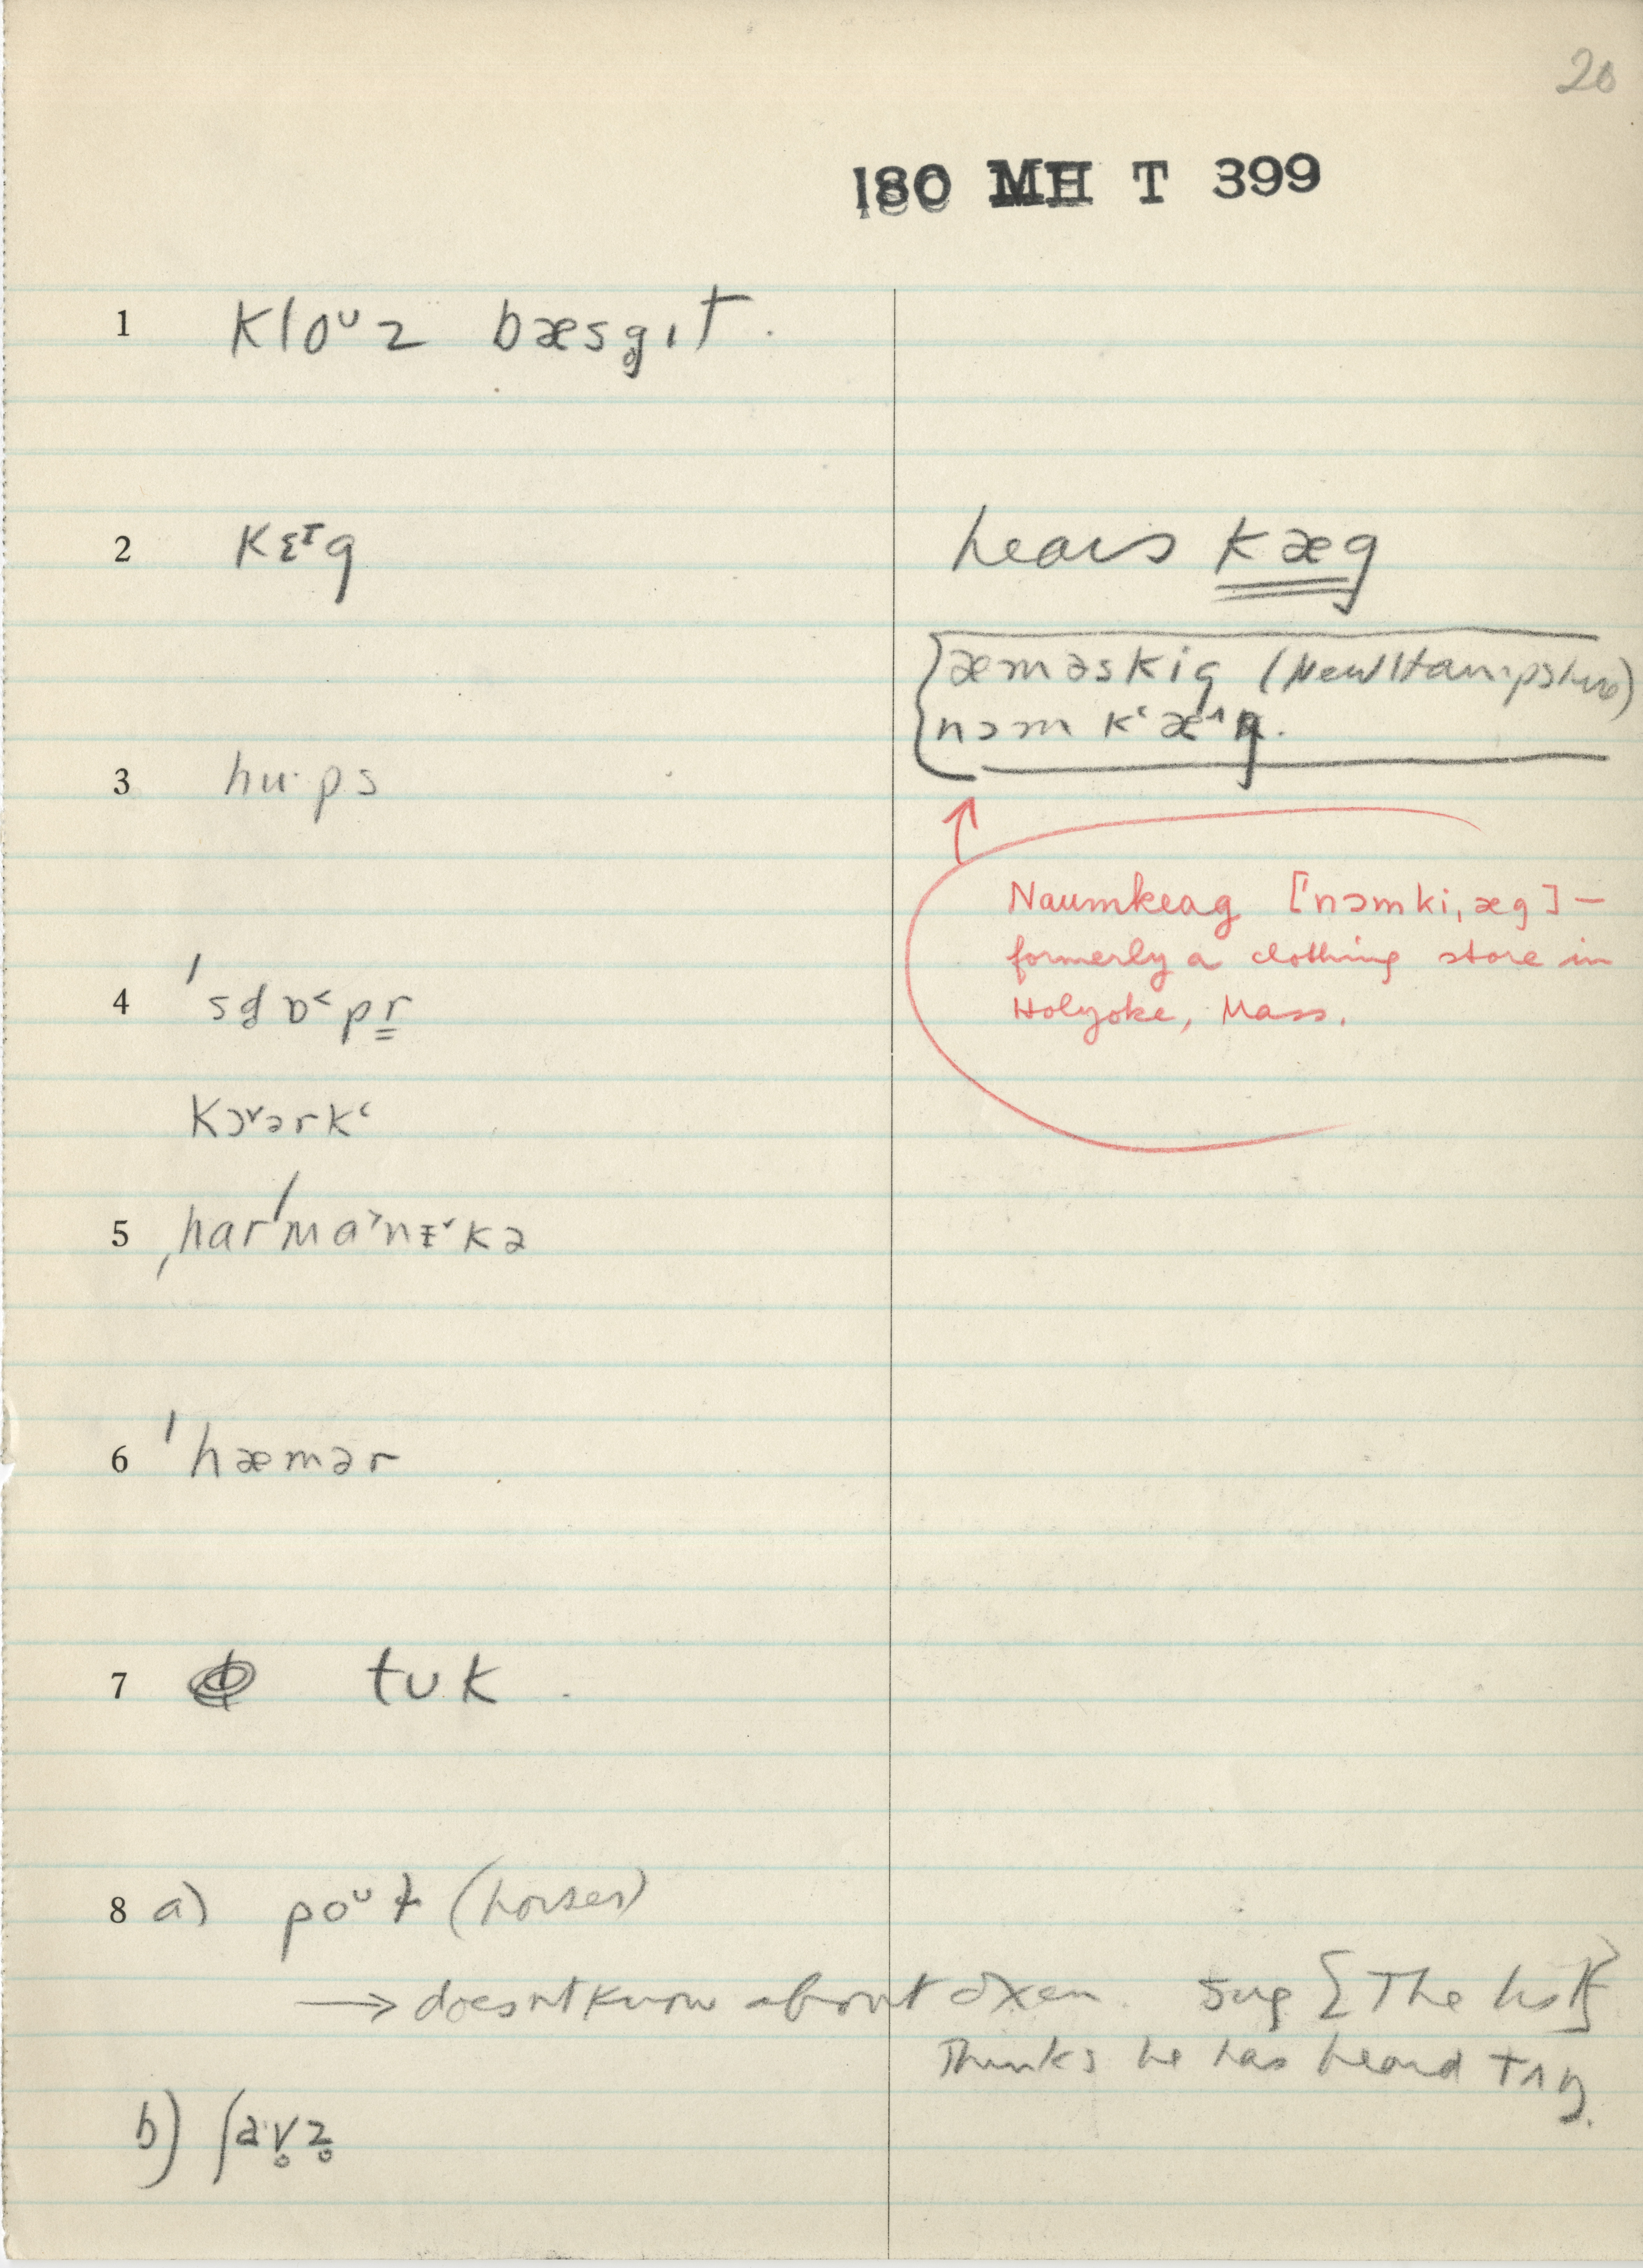 20
180 MH T 399
1 kloᵘz bæsg̥ıt .
2 kɛᶦg
hears kæg
æməskig (New Hampshire)
nɔm kʻæ^g.
3 hu·ps
Naumkeag ['nɔmki,æg] –
formerly a clothing store in
Holyoke, Mass.
4 'sd̥ɒ˂pr
kɔ˅ərkʻ
5 ,har'ma˃nɪ˅kə
6 'hæmər
7 tʊk .
8 a) poᵘɫ (horses)
→ doesn't know about oxen. sug {The list}
Thinks he has heard tʌŋ.
b) ʃa·v̥z̥